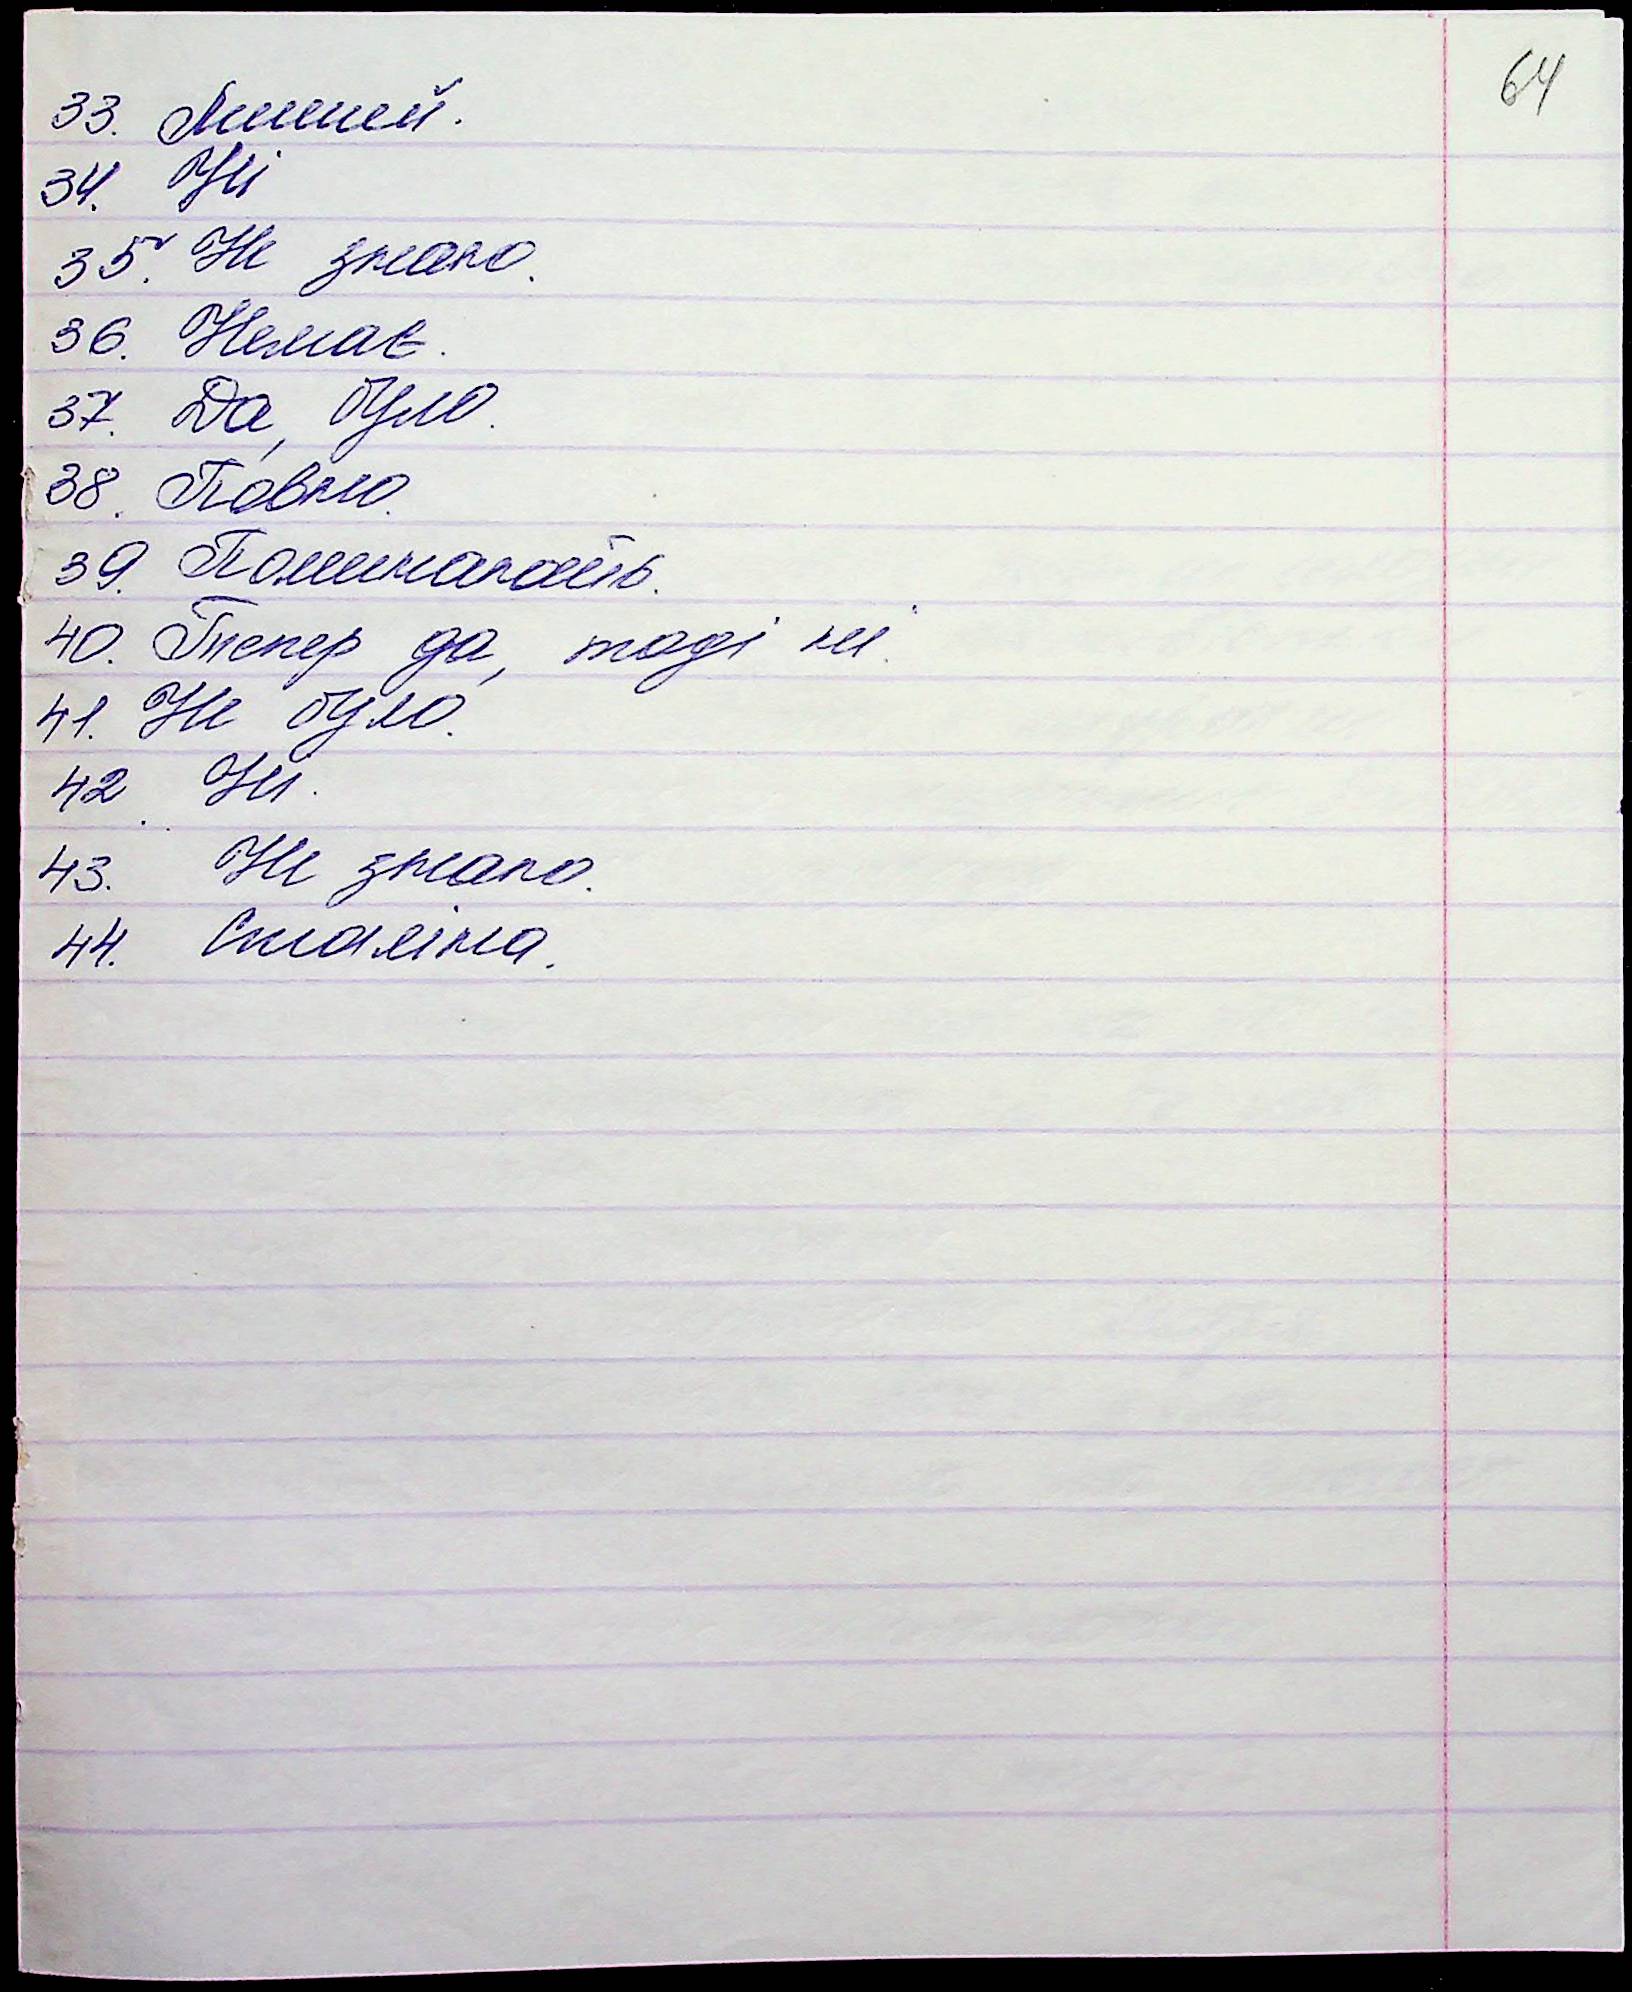 64
33. Людей.
34. Ні
35. Не знаю.
36. Немає.
37. Да, було.
38. Повно.
39. Поминають.
40. Тепер да, тоді ні.
41. Не було.
42. Ні.
43. Не знаю.
44. Сталіна.